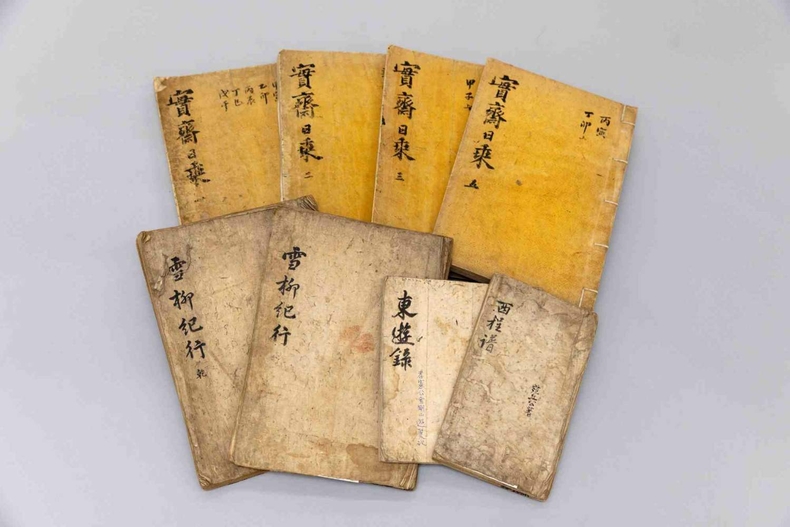 乙卯
丙辰
丁巳
戊午
實齋日乘 一
實齋日乘 二
甲子
實齋日乘 三
丙寅
丁卯
實齋日乘 五
雪柳紀行 乾
雪柳紀行
東遊錄
西程譜